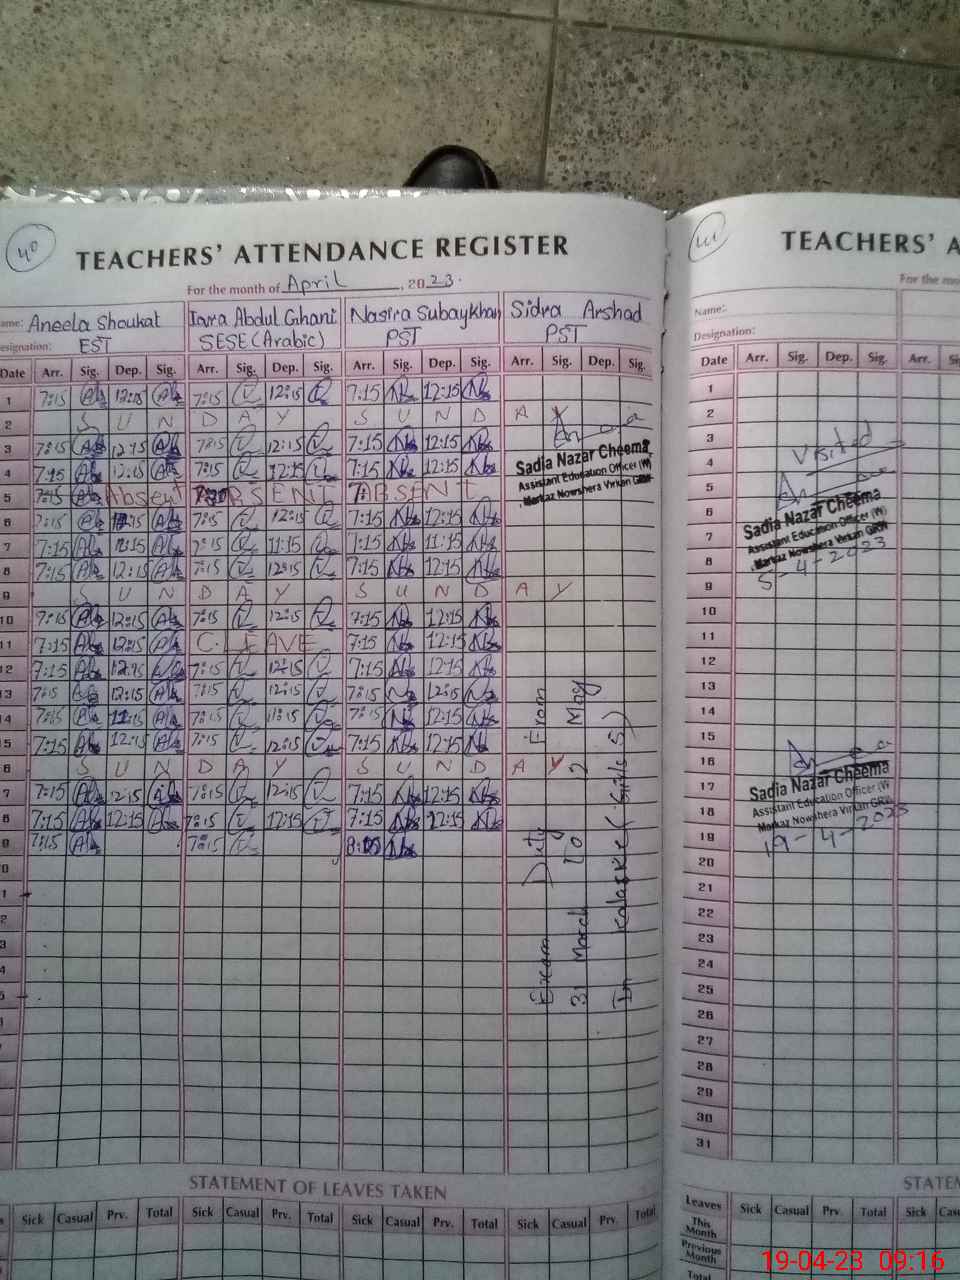 40
TEACHERS' ATTENDANCE REGISTER
For the month of April, 2023.
ame: Aneela Shoukat Iqra Abdul Ghani Nasira Subaykhan Sidra Arshad
esignation: EST SESE (Arabic) PST PST
Date Arr. Sig. Dep. Sig. Arr. Sig. Dep. Sig. Arr. Sig. Dep. Sig. Arr. Sig. Dep. Sig.
1 7:15 12:15 7:15 12:15 7:15 12:15
2 S U N D A Y S U N D A Y
3 7:15 12:15 7:15 12:15 7:15 12:15
4 7:15 12:15 7:15 12:15 7:15 12:15
5 7:15 Absent ABSENT ABSENT
6 7:15 12:15 7:15 12:15 7:15 12:15
7 7:15 11:15 7:15 11:15 7:15 11:15
8 7:15 12:15 7:15 12:15 7:15 12:15
9 S U N D A Y S U N D A Y
10 7:15 12:15 7:15 12:15 7:15 12:15
11 7:15 12:15 C. LEAVE 7:15 12:15
12 7:15 12:15 7:15 12:15 7:15 12:15
13 7:15 12:15 7:15 12:15 7:15 12:15
14 7:15 11:15 7:15 11:15 7:15 12:15
15 7:15 12:15 7:15 12:15 7:15 12:15
6 S U N D A Y S U N D A Y
7 7:15 12:15 7:15 12:15 7:15 12:15
8 7:15 12:15 7:15 12:15 7:15 12:15
9 7:15 7:15
0
1
2
3
4
Sadia Nazar Cheema
Assistant Education Officer (W)
Markaz Nowshera Virkan GRW
Exam Duty From
31 March to 2 May
In Kalaske (Girls)
STATEMENT OF LEAVES TAKEN
Sick Casual Prv. Total Sick Casual Prv. Total Sick Casual Prv. Total Sick Casual Prv. Total
41
TEACHERS' A
For the mo
Name:
Designation:
Date Arr. Sig. Dep. Sig. Arr. Sig
1
2
3
4
5
6
7
8
9
10
11
12
13
14
15
16
17
18
19
20
21
22
23
24
25
26
27
28
29
30
31
Visited
Sadia Nazar Cheema
Assistant Education Officer (W)
Markaz Nowshera Virkan GRW
5-4-2023
Sadia Nazar Cheema
Assistant Education Officer (W)
Markaz Nowshera Virkan GRW
19-4-2023
STATEM
Leaves Sick Casual Prv. Total Sick Cas
This Month
Previous Month
Total
19-04-23 09:16